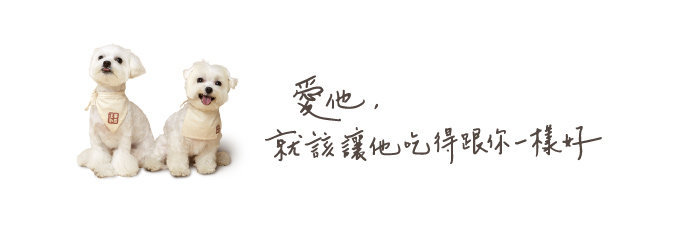 愛他，
就該讓他吃得跟你一樣好